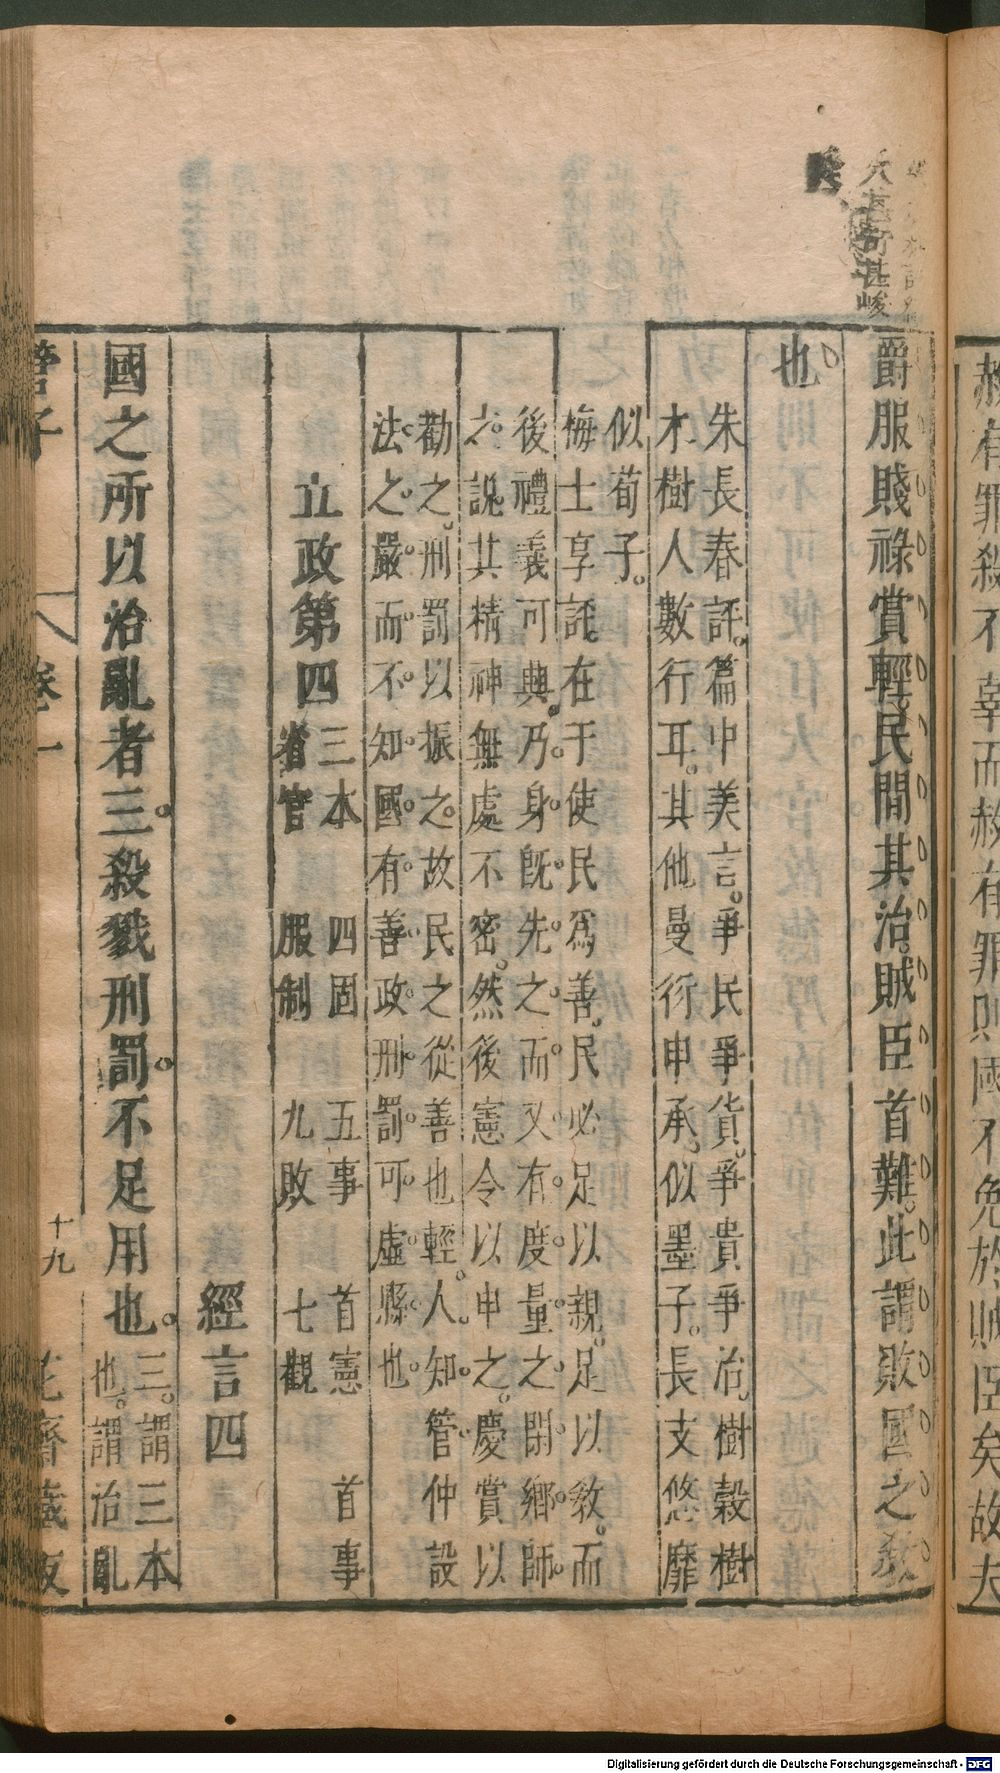 赦有罪殺不辜而赦有罪則國不免於賊臣矣故夫
大甚奇甚峻
爵服賤祿賞輕民間其治賊臣首難此謂敗國之教
也
朱長春評篇中美言爭民爭貨爭貴爭治樹穀樹
木樹人數行耳其他曼衍申承似墨子長支悠靡
似荀子
梅士享評在于使民為善民必足以親足以教而
後禮義可興乃身既先之而又有度量之閑鄉師
之說其精神無處不密然後憲令以申之慶賞以
勸之刑罰以振之故民之從善也輕人知管仲設
法之嚴而不知國有善政刑罰可虛縣也
立政第四 三本 四固 五事 首憲 首事
省官 服制 九敗 七觀
經言四
國之所以治亂者三殺戮刑罰不足用也 三謂三本
也謂治亂
管子 卷一 十九 花齋藏板
Digitalisierung gefördert durch die Deutsche Forschungsgemeinschaft - DFG